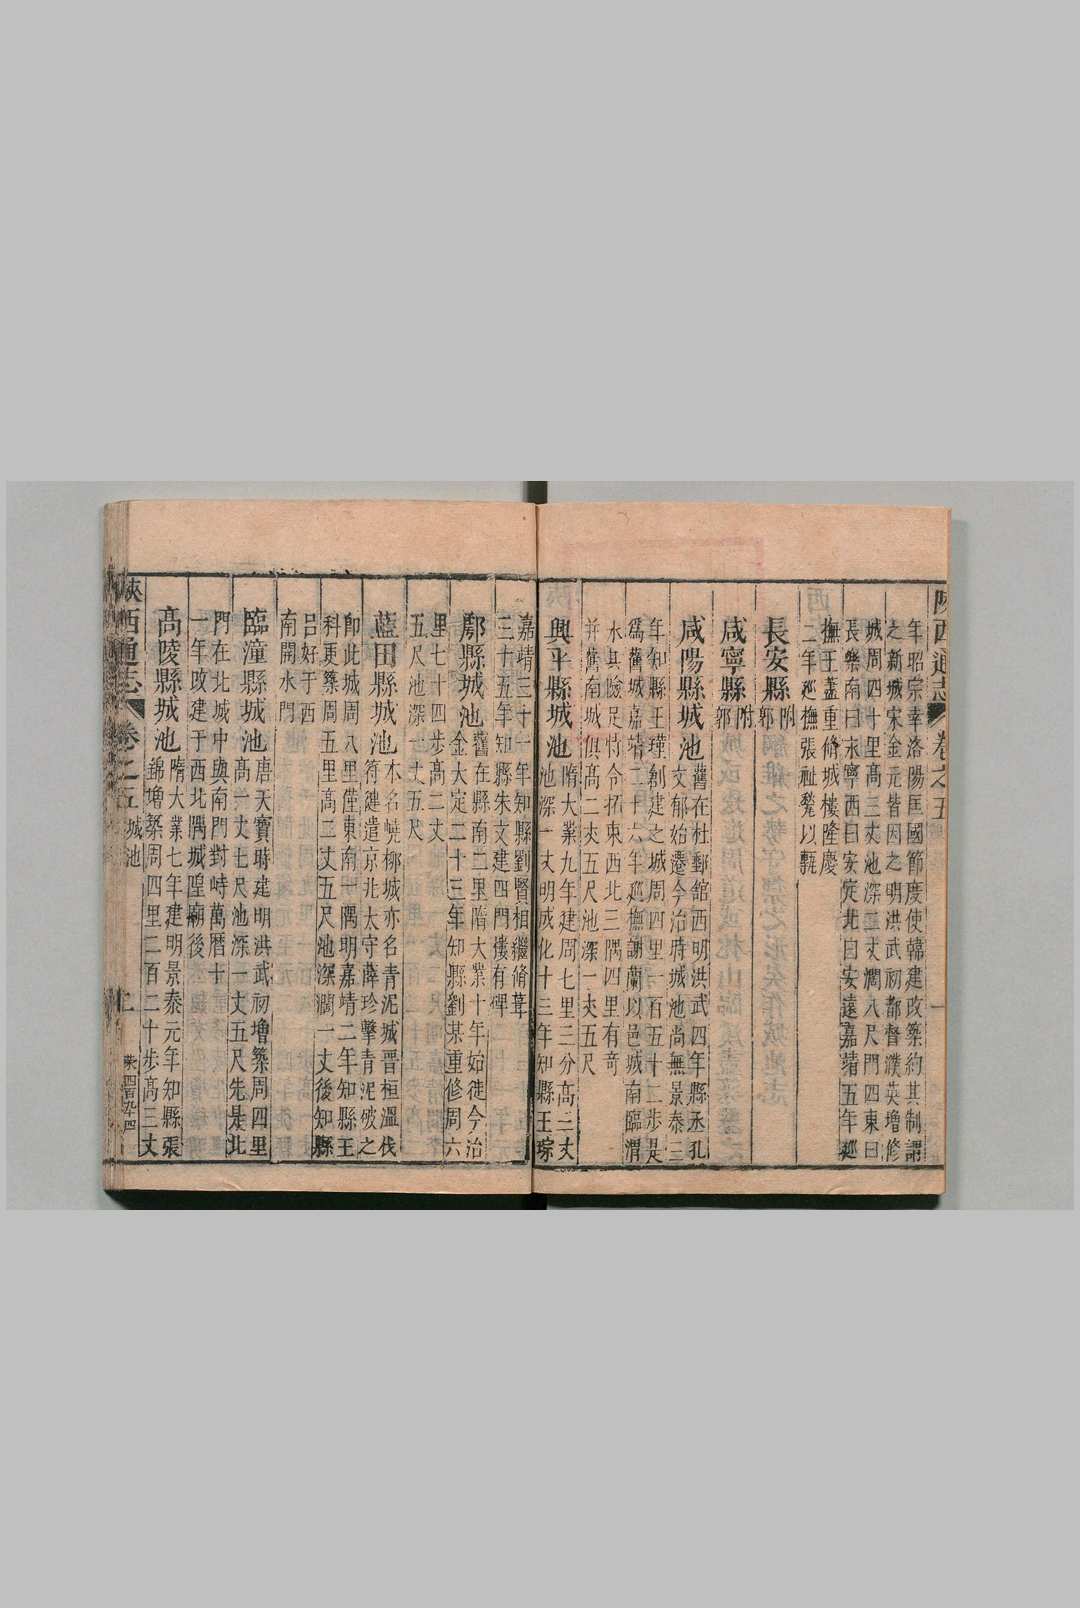 陝西通志 卷之五 一
年昭宗幸洛陽匡國節度使韓建改築約其制謂
之新城宋金元皆因之明洪武初都督濮英增修
城周四十里高三丈池深二丈濶八尺門四東曰
長樂南曰永寧西曰安定北曰安遠嘉靖五年廵
撫王藎重脩城樓隆慶
二年廵撫張祉甃以甎
長安縣附郭
咸寧縣附郭
咸陽縣城池舊在杜郵館西明洪武四年縣丞孔
文郁始遷今治時城池尚無景泰三
年知縣王瑾創建之城周四里一百五十二步是
爲舊城嘉靖二十六年廵撫謝蘭以邑城南臨渭
水其險足恃令拓東西北三隅四里有竒
并舊南城俱高二丈五尺池深一丈五尺
興平縣城池隋大業九年建周七里三分高二丈
池深一丈明成化十三年知縣王琮
嘉靖三十一年知縣劉賢相繼脩葺
三十五年知縣朱文建四樓有碑
鄠縣城池舊在縣南二里隋大業十年始徙今治
金大定二十三年知縣劉某重修周六
里七十四步高二丈
五尺池深一丈五尺
藍田縣城池本名嶢栁城亦名青泥城晉桓溫伐
符健遣京兆太守薛珍擊青泥破之
卽此城周八里僅東南一隅明嘉靖二年知縣王
科更築周五里高二丈五尺池深濶一丈後知縣
呂好于西
南開水門
臨潼縣城池唐天寶時建明洪武初增築周四里
高一丈七尺池深一丈五尺先是北
門在北城中與南門對峙萬曆十
一年改建于西北隅城隍廟後
高陵縣城池隋大業七年建明景泰元年知縣張
錦增築周四里二百二十步高三丈
陝西通志 卷之五 城池